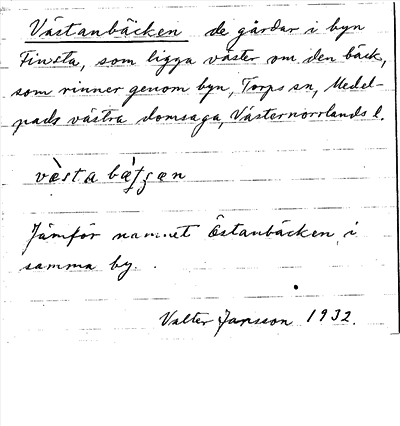 Västanbäcken de gårdar i byn
Finsta, som ligga väster om den bäck,
som rinner genom byn, Torps sn, Medel-
pads västra domsaga, Västernorrlands l.
Jämför namnet Östanbäcken i
samma by.
Valter Jansson 1932.